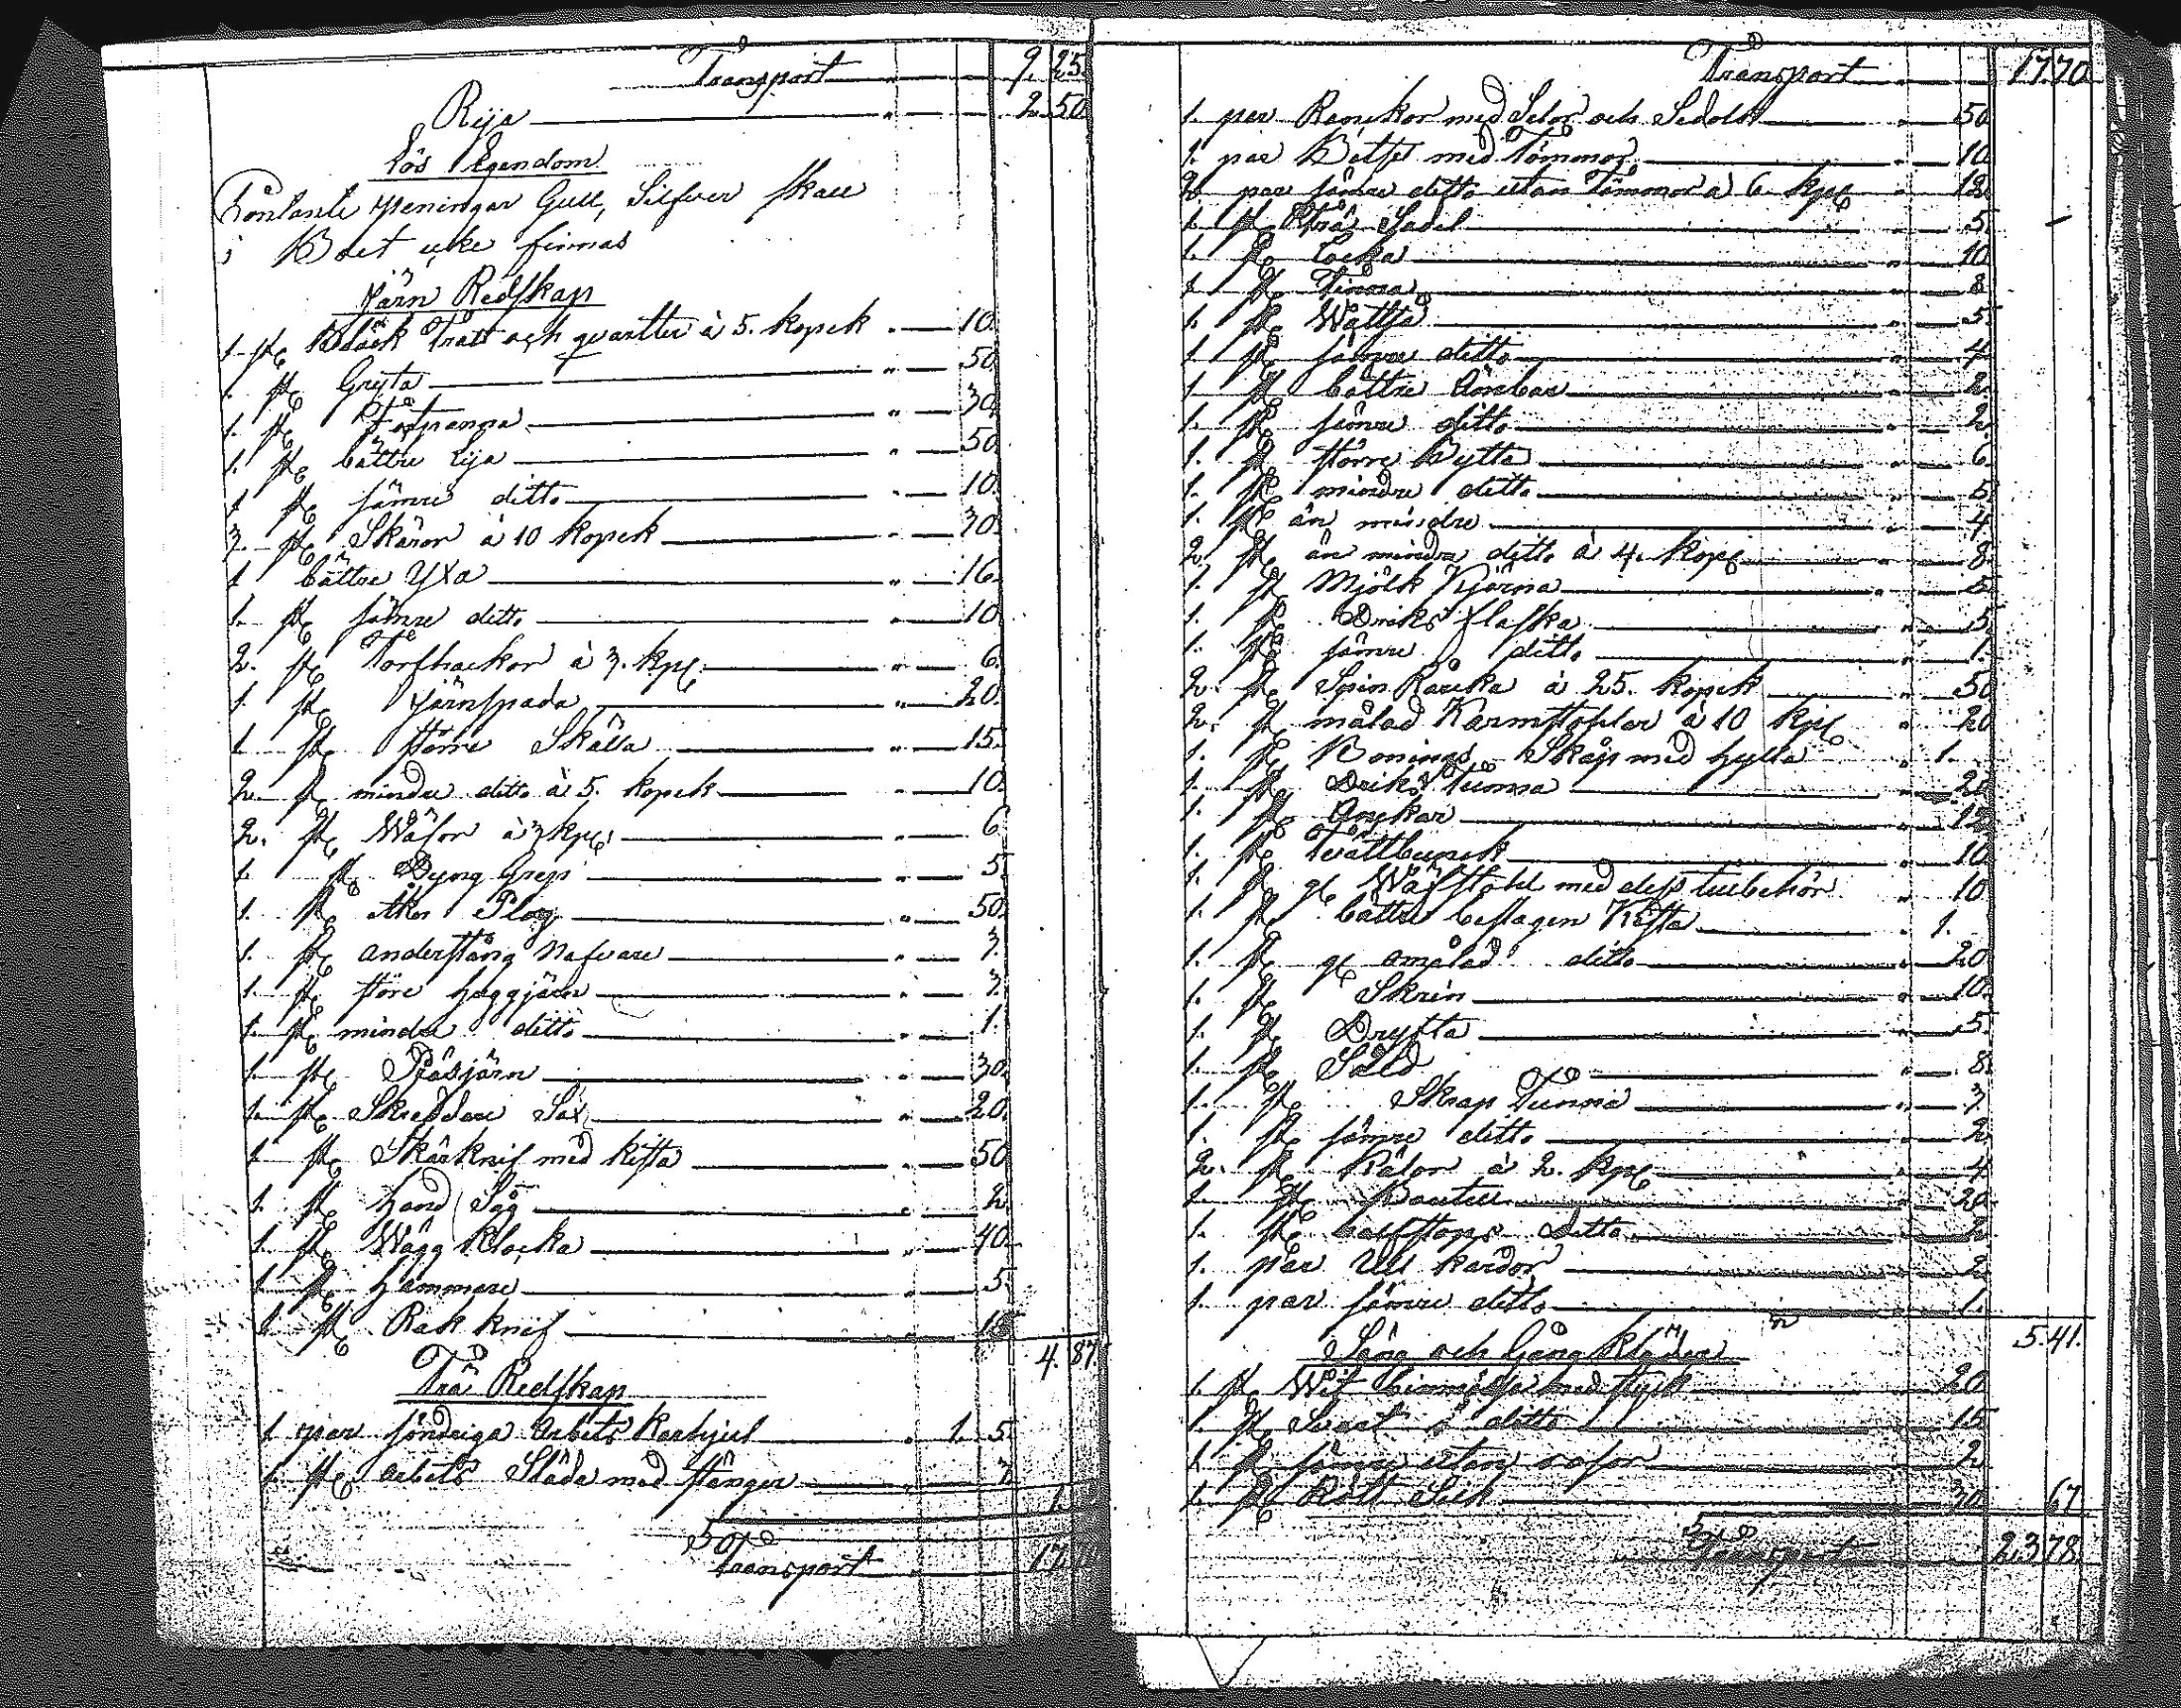 Transport 9. 25.
Rija " 2. 50
Lös Egendom
Contante peningar Gull, Silfver skall
i Boet icke finnas
Järn Redskap
1. st Bläck Tratt och qvarter à 5. kopek " 10.
1. st Gryta " 50.
1. st Stekpanna " 30.
1. st bättre Lija " 50.
1 st sämre ditto " 10.
3. st Skäror à 10 kopek " 30.
1 bättre Yxa " 16.
1. st sämre ditto " 10.
2. st Torfhackor à 3. kpk " 6.
1. st Järnspada " 20.
1 st större Skälla " 15.
2. st mindre ditto à 5. kopek " 10.
2. st Wäfor à 3 kpk " 6
1. st Dyng Grep " 5.
1. st Åker Plog " 50.
1. st anderstång Nafvare " 3.
1. st störe huggjärn " 3.
1. st mindre ditto " 1.
1. st Präsjärn " 30.
1. st Skreddare Sax " 20.
1 st Skärknif med kista " 50
1. st Hand Såg " 2.
1. st Wägg Klocka " 40.
1 st hammare " 5.
1 st Rak knif " 15
4. 87.
Trä Redskap
1 par söndriga Arbets Karhjul " 1. 5.
1. st arbets Släda med stänger " 3
1.
Transport 17.
Transport 17. 70
1. par Ranckor med Selor och Sedolk " 50
1. par Betsel med Tömmor " 10
2 par sämre ditto utan Tömmor à 6 kpk " 12
1. st Trä Sadel " 5.
1. st Locka " 10
1 st Tinna " 8
1. st Wattså " 5.
1 st sämre ditto " 4.
1 st bättre Ämbar " 2.
1. st sämre ditto " 2.
1. st större Bytta " 6.
1. st mindre ditto " 5.
1. st än mindre " 4
2. st än mindre ditto à 4. kopk " 8.
1. st Mjölk Kjärna " 5.
1. st Dricks flaska " 5.
1. st sämre ditto " 1.
2. st Spin Råcka à 25. kopek " 50
2. st målad Karmstolar à 10 kpk " 20
1. st Bonings Skåp med hylla " 1.
1. st Dricks Tunna " 20
1. st Anckar " 12
1. st Twättbunck " 10
1. st gl Wäfstohl med dess tillbehör 10
1. st bättre beslagen Kista " 1.
1. st gl omålad ditto " 20
1. st Skrin " 10.
1. st Dryfta " 5.
1. st Såld " 8.
1. st Skrap Tunna " 3
1. st sämre ditto " 2
2. st Kälor à 2. kpk " 4
1. st Boutell " 20.
1. st halfstops Ditto " 2
1. par Ull kardor " 2
1. par sämre ditto " 1.
5. 41.
Säng och Gång Kläder
1. st Wit
1. st Svart ditto 15
1. st sämre utan 2
1. st Rött 30 67
Transport 23 78.